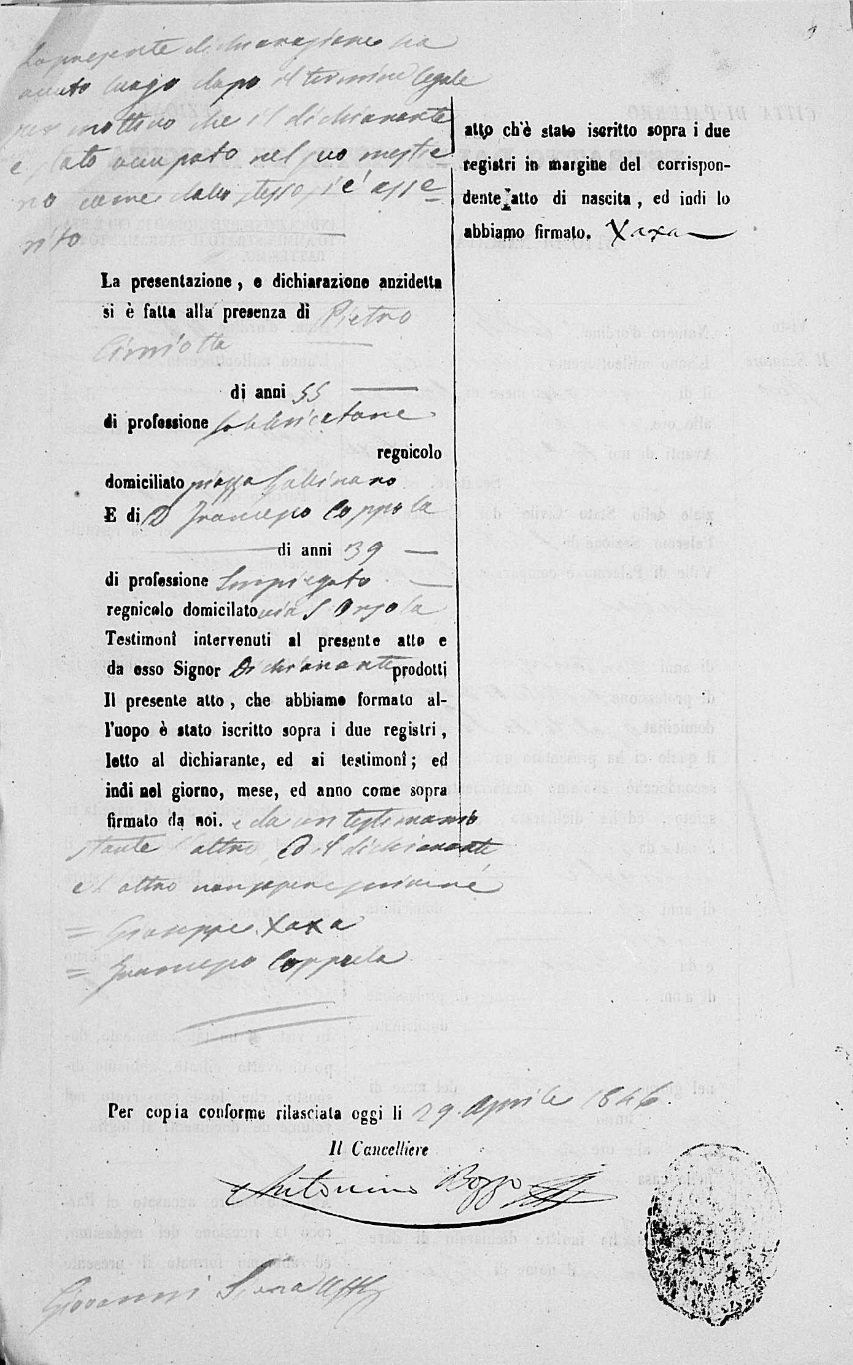 La presente dichiarazione ha
avuto luogo dopo il termine legale
per mottivo che il dichiarante
è stato occupato nel suo mestie
ro come dallo stesso si è asse
rito
La presentazione, e dichiarazione anzidetta
si è fatta alla presenza di Pietro
Cimiotta
di anni 55
di professione fabbricatore
regnicolo
domiciliato piazza
E di D Francesco Coppola
di anni 39
di professione Impiegato
regnicolo domicilato via S Orsola
Testimonî intervenuti al presente atto e
da esso Signor Dichiarante prodotti
Il presente atto, che abbiamo formato al-
l'uopo è stato iscritto sopra i due registri,
letto al dichiarante, ed ai testimonî; ed
indi nel giorno, mese, ed anno come sopra
firmato da noi. e da un testimonio
stante l'altro, ed il dichiarante
e l'altro non sapere scrivere
= Giuseppe Xaxa
= Francesco Coppola
atto ch'è stato iscritto sopra i due
registri in margine del corrispon-
dente atto di nascita, ed indi lo
abbiamo firmato. Xaxa
Per copia conforme rilasciata oggi li 29 Aprile 1846.
Il Cancelliere
Antonino Bozzo
Giovanni